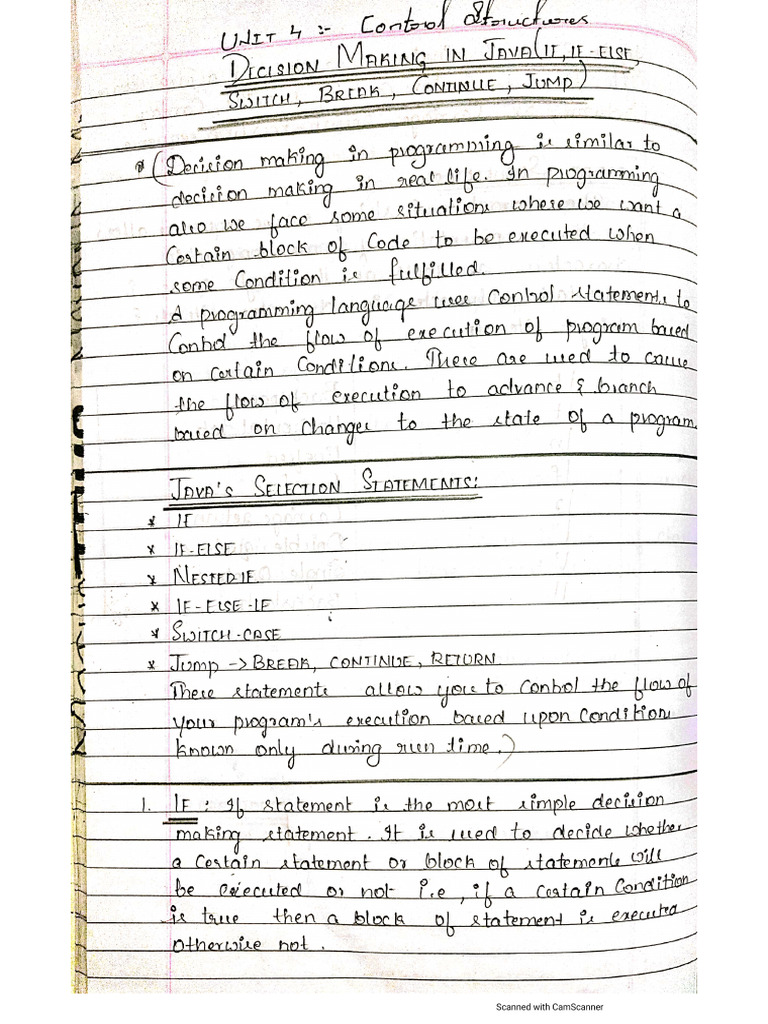 UNIT 4 :- Control Structures
DECISION MAKING IN JAVA (IF, IF-ELSE,
SWITCH, BREAK, CONTINUE, JUMP)
* (Decision making in programming is similar to
decision making in real life. In programming
also we face some situations where we want a
certain block of code to be executed when
some condition is fulfilled.
A programming language uses control statements to
control the flow of execution of program based
on certain conditions. These are used to cause
the flow of execution to advance & branch
based on changes to the state of a program.
JAVA'S SELECTION STATEMENTS:
* IF
* IF-ELSE
* NESTED IF
* IF-ELSE-IF
* SWITCH-CASE
* Jump -> BREAK, CONTINUE, RETURN
These statements allow you to control the flow of
your program's execution based upon conditions
known only during run time.)
1. IF : If statement is the most simple decision
making statement. It is used to decide whether
a certain statement or block of statements will
be executed or not i.e, if a certain condition
is true then a block of statement is executed
otherwise not.
Scanned with CamScanner